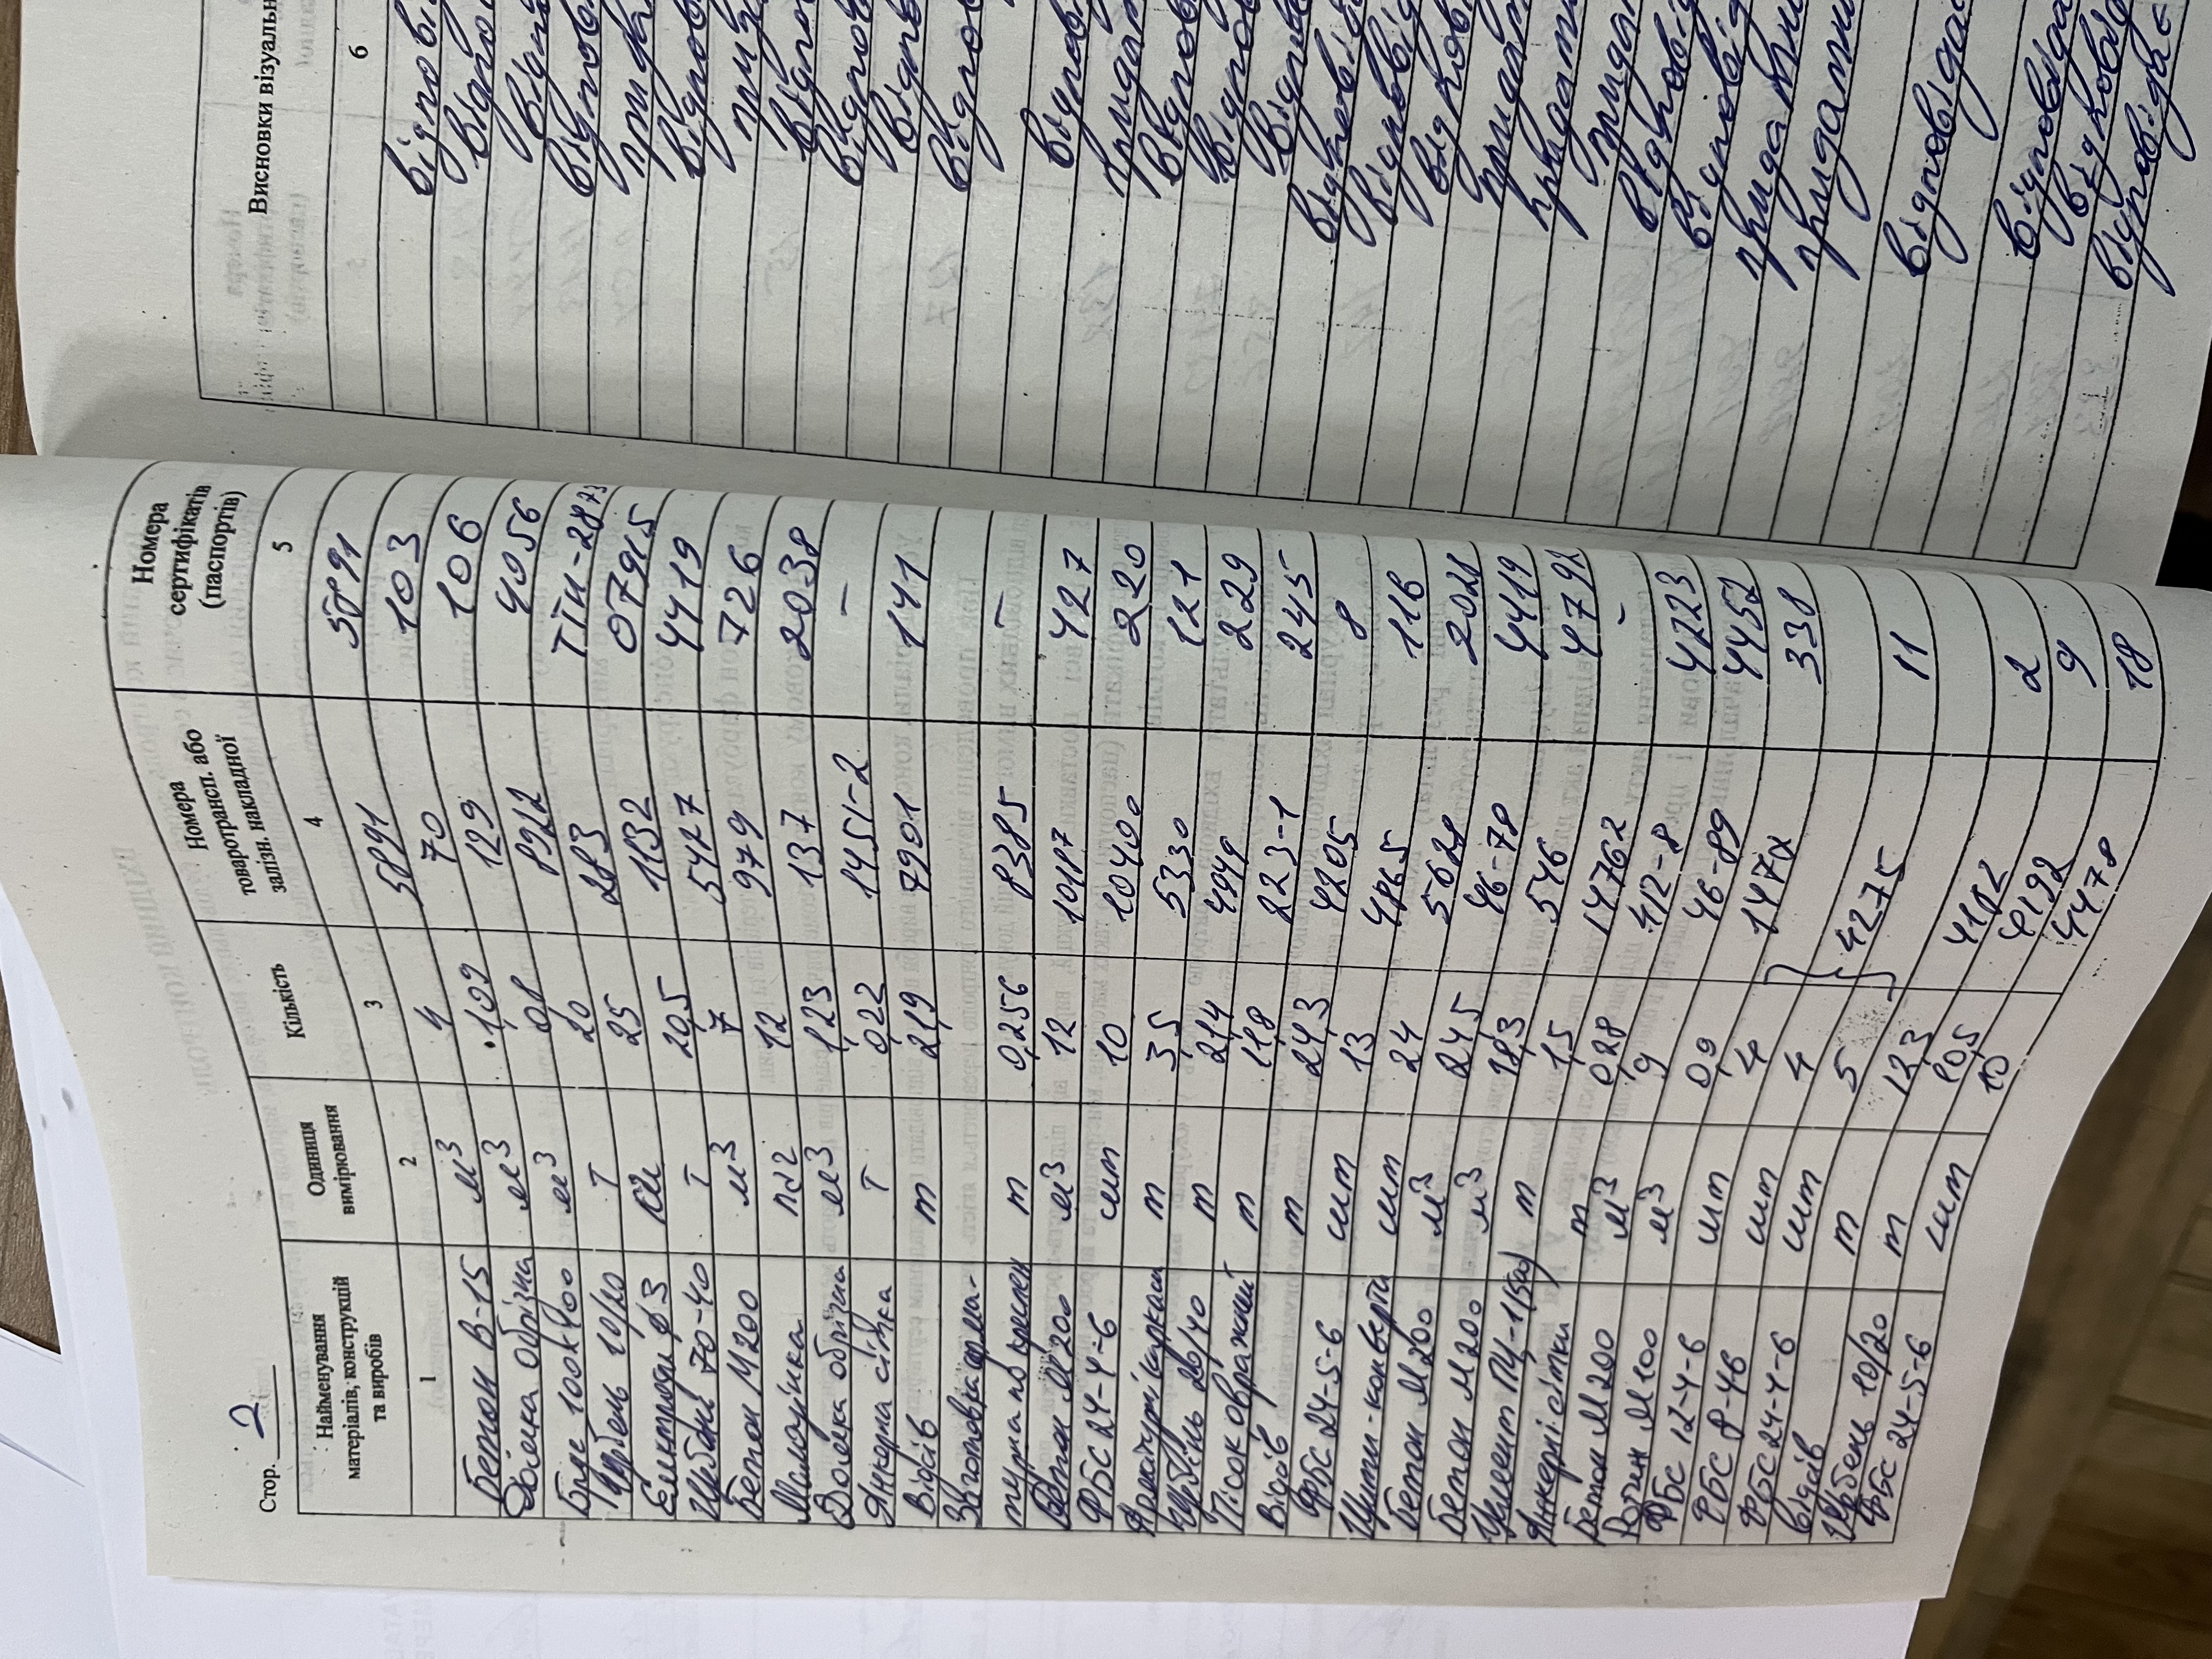 Стор. 2
Найменування матеріалів, конструкцій та виробів | Одиниця вимірювання | Кількість | Номера товаротрансп. або залізн. накладної | Номера сертифікатів (паспортів)
1 | 2 | 3 | 4 | 5
Бетон В-15 | м3 | 4 | 58891 | 58891
Дошка обрізна | м3 | 1,09 | 70 | 103
Брус 100х100 | м3 | 0,8 | 129 | 106
Щебень 10/20 | Т | 20 | 8922 | 4956
Електроди ф3 | кг | 25 | 283 | ТТН-2873
Щебінь 70-40 | Т | 20,5 | 1132 | 07915
Бетон М200 | м3 | 7 | 5427 | 4419
Мішковина | м2 | 12 | 979 | 726
Дошка обрізна | м3 | 1,23 | 137 | 2038
Анкерна сітка | Т | 0,22 | 1451-2 | –
Відсів | т | 21,9 | 7901 | 141
Заготовка арма-
турна по креслен | т | 0,256 | 8385 | –
Бетон М200 | м3 | 12 | 10187 | 427
ФБС 24-4-6 | шт | 10 | 10400 | 220
Арматурні каркаси | т | 3,5 | 5330 | 121
Щебінь 20/40 | т | 21,4 | 4949 | 2229
Пісок овражний | т | 11,8 | 223-1 | 245
Відсів | т | 24,3 | 4205 | 8
ФБС 24-5-6 | шт | 13 | 4865 | 116
Цегли-конверта | шт | 24 | 5628 | 2028
Бетон М200 | м3 | 24,5 | 46-78 | 4419
Бетон М200 | м3 | 18,3 | 546 | 4792
Цемент ПЦ-1(500) | т | 1,5 | 14762 | –
Анкерні сітки | т | 0,28 | 412-8 | 4223
Бетон М200 | м3 | 9 | 46-89 | 4452
Розчин М100 | м3 | 0,9 | 1472 | 338
ФБС 12-4-6 | шт | 4
ФБС 8-4-6 | шт | 4 | 4275 | 11
ФБС 24-4-6 | шт | 5
Відсів | т | 12,3 | 4182 | 2
Щебень 10/20 | т | 20,5 | 4192 | 9
ФБС 24-5-6 | шт | 10 | 4478 | 18
Висновки візуальн
6
відпові
відпо
відп
відпов
прида
відпов
при
відпо
відпов
відпо
відпов
відпові
придат
відпов
відпов
відпов
відповід
відповід
відпові
придатн
придатн
придат
відповід
відповід
придатни
придатни
відповіда
відповіда
відповід
відповідає